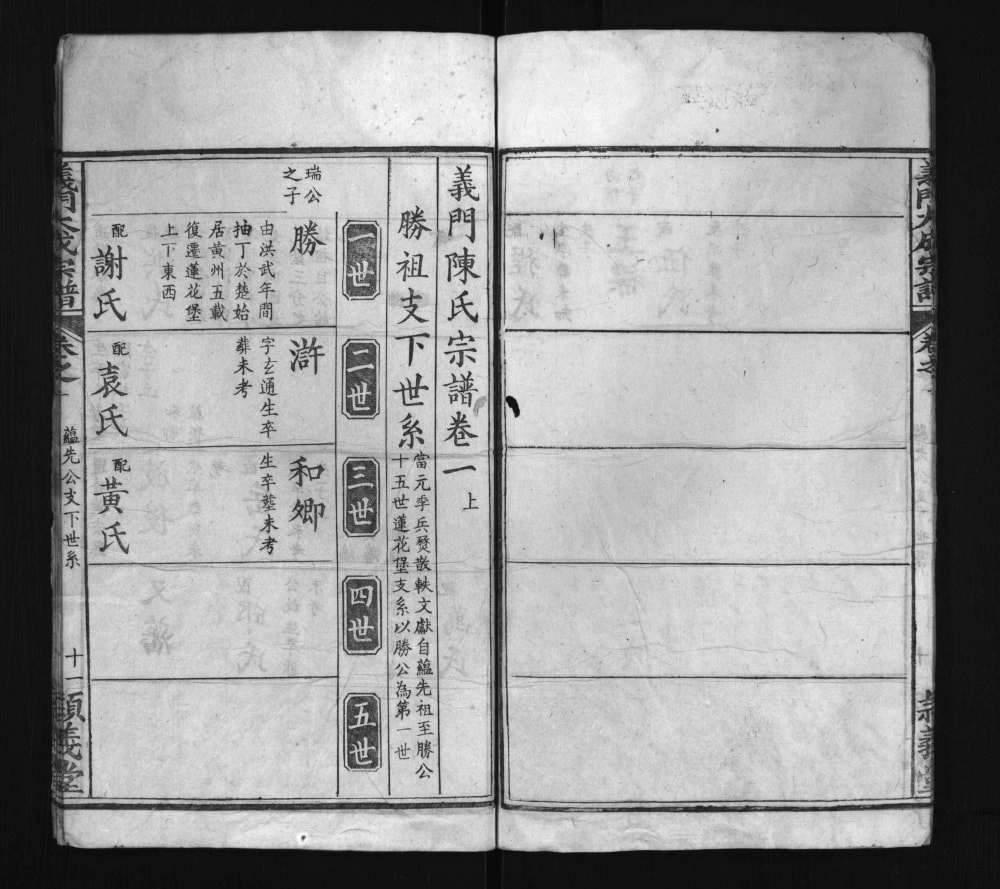 義門陳氏宗譜卷一 上
勝祖支下世系
當元季兵燹散軼文獻自蘊先祖至勝公
十五世蓮花堡支系以勝公為第一世
一世
二世
三世
四世
五世
瑞公
之子
勝
由洪武年間
抽丁於楚始
居黃州五載
復遷蓮花堡
上下東西
配
謝氏
滸
字玄通生卒
葬未考
配
袁氏
和卿
生卒塟未考
配
黃氏
義門大成宗譜
卷之一
蘊先公支下世系
十一
義門大成宗譜
卷之